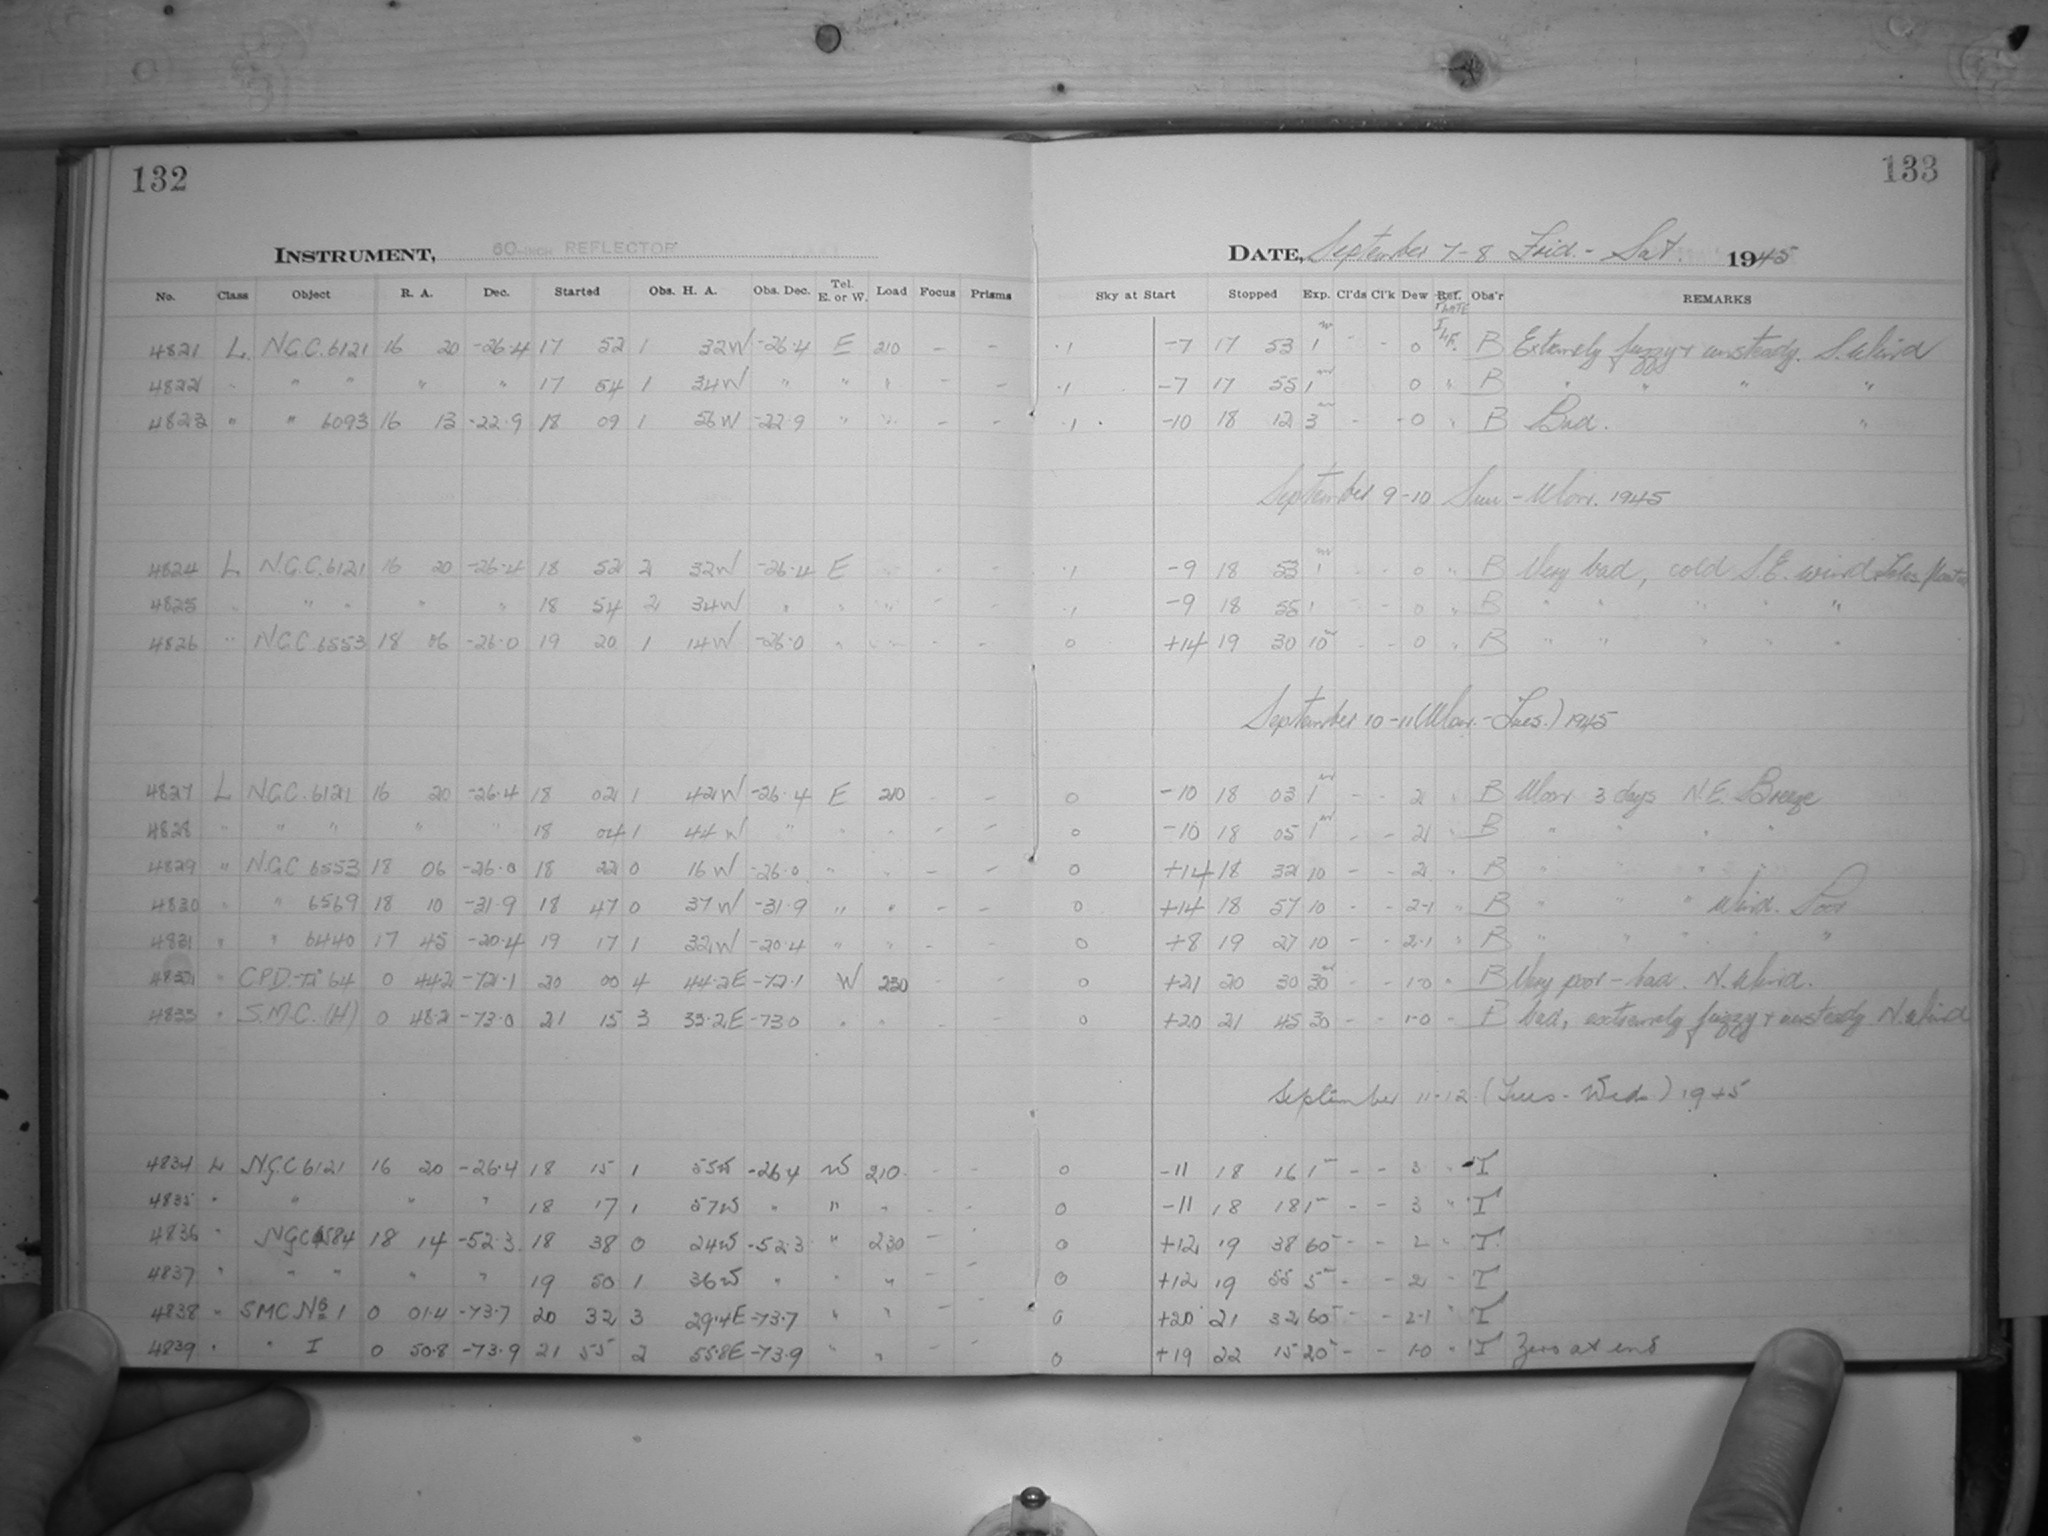 132 133
INSTRUMENT, 60-INCH REFLECTOR DATE, September 7-8 Frid. - Sat. 1945
No. Class Object R. A. Dec. Started Obs. H. A. Obs. Dec. Tel. E. or W. Load Focus Prisms Sky at Start Stopped Exp. Cl'ds Cl'k Dew Ref. Obs'r REMARKS
PLATE
4821 L N.G.C. 6121 16 20 -26.4 17 52 1 32W -26.4 E 210 - - .1 -7 17 53 1m - - 0 B Extremely fuzzy + unsteady. S. Wind
4822 " " " " " 17 54 1 34W " " " - - .1 -7 17 55 1m 0 " B " " " "
4823 " " 6093 16 13 -22.9 18 09 1 56W -22.9 " " - - .1 -10 18 12 3m - - 0 " B Bad. "
September 9-10 Sun - Mon. 1945
4824 L N.G.C. 6121 16 20 -26.4 18 52 2 32W -26.4 E .1 -9 18 53 1m - - 0 " B Very bad, cold S.E. wind
4825 " " " " " 18 54 2 34W " " " - - .1 -9 18 55 1 - - 0 " B " " " " "
4826 " N.G.C. 6553 18 06 -26.0 19 20 1 14W -26.0 " " - - 0 +14 19 30 10m - - 0 " B " " " " "
September 10-11 (Mon. - Tues.) 1945
4827 L N.G.C. 6121 16 20 -26.4 18 02 1 42W -26.4 E 210 - - 0 -10 18 03 1m - - 2 " B Moon 3 days N.E. Breeze
4828 " " " " " 18 04 1 44W " " " - - 0 -10 18 05 1m - - 2 " B " " " "
4829 " N.G.C. 6553 18 06 -26.0 18 22 0 16W -26.0 " " - - 0 +14 18 32 10 - - 2 " B " " " "
4830 " " 6569 18 10 -31.9 18 47 0 37W -31.9 " " - - 0 +14 18 57 10 - - 2-1 " B " " " Wind. Poor
4831 " " 6440 17 45 -20.4 19 17 1 32W -20.4 " " - - 0 +8 19 27 10 - - 2-1 " B " " " " "
4832 " C.P.D.-72° 64 0 44.2 -72.1 20 00 4 44.2E -72.1 W 230 - - 0 +21 20 30 30m - - 1-0 " B Very poor - bad. N. Wind.
4833 " S.M.C. (H) 0 48.2 -73.0 21 15 3 33.2E -73.0 " " - - 0 +20 21 45 30 - - 1-0 - B bad, extremely fuzzy + unsteady N. Wind
September 11-12 (Tues - Wed.) 1945
4834 L NGC 6121 16 20 -26.4 18 15 1 55W -26.4 W 210 - - 0 -11 18 16 1m - - 3 " T
4835 " " " " 18 17 1 57W " " " - - 0 -11 18 18 1m - - 3 " T
4836 " NGC 6584 18 14 -52.3 18 38 0 24W -52.3 " 230 - - 0 +12 19 38 60m - - 2 " T
4837 " " " " " 19 50 1 36W " " " - - 0 +12 19 55 5m - - 2 - T
4838 " SMC No 1 0 01.4 -73.7 20 32 3 29.4E -73.7 " " - - 0 +20 21 32 60m - - 2-1 " T
4839 " " I 0 50.8 -73.9 21 55 2 55.8E -73.9 " " - - 0 +19 22 15 20m - - 1-0 " T Zero at end